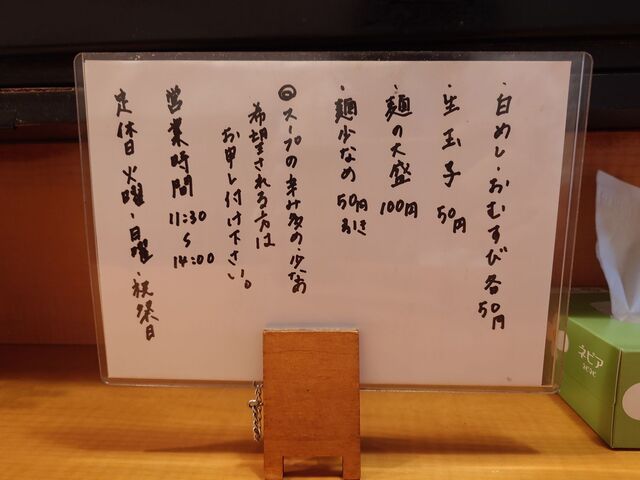 ・白めし・おむすび各50円
・生玉子 50円
・麺の大盛 100円
・麺少なめ 50円引き
◎スープの辛み多め・少なめ
希望される方は
お申し付け下さい。
営業時間 11:30〜14:00
定休日 火曜・日曜・祝祭日
ネピア